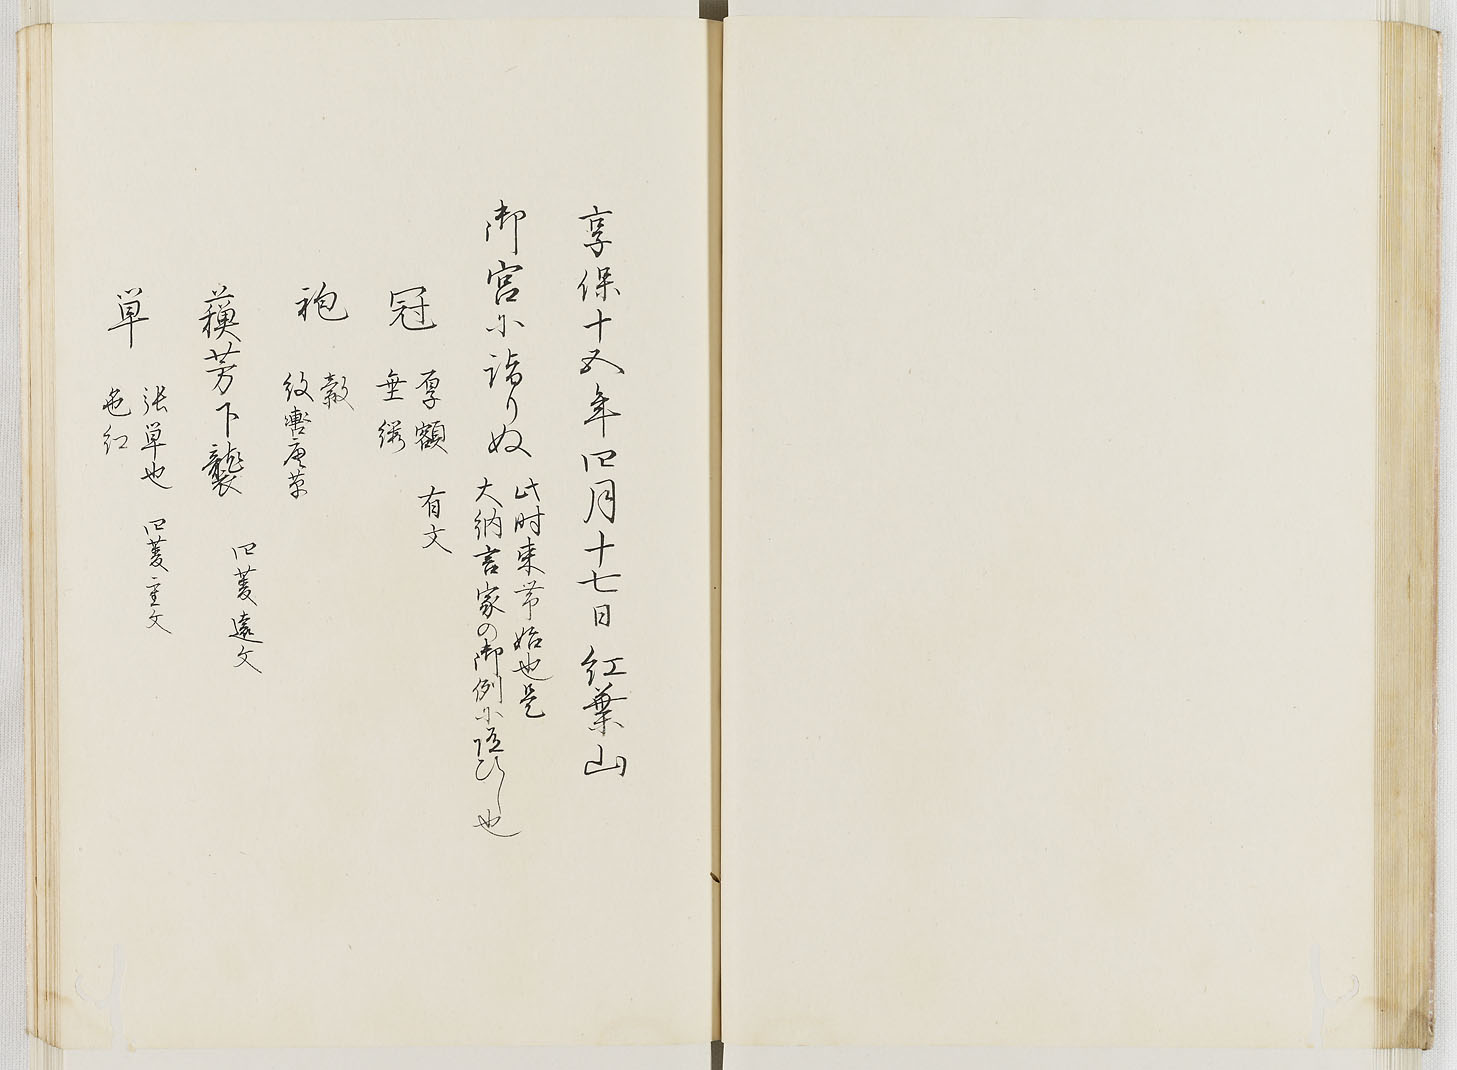 享保十五年四月十七日紅葉山
御宮に詣りぬ
此時束帯始也是
大納言家の御例に随ひし也
冠
厚額 有文
垂纓
袍
縠
紋轡唐草
蘓芳下襲 四菱遠文
単
張単也 四菱重文
色紅